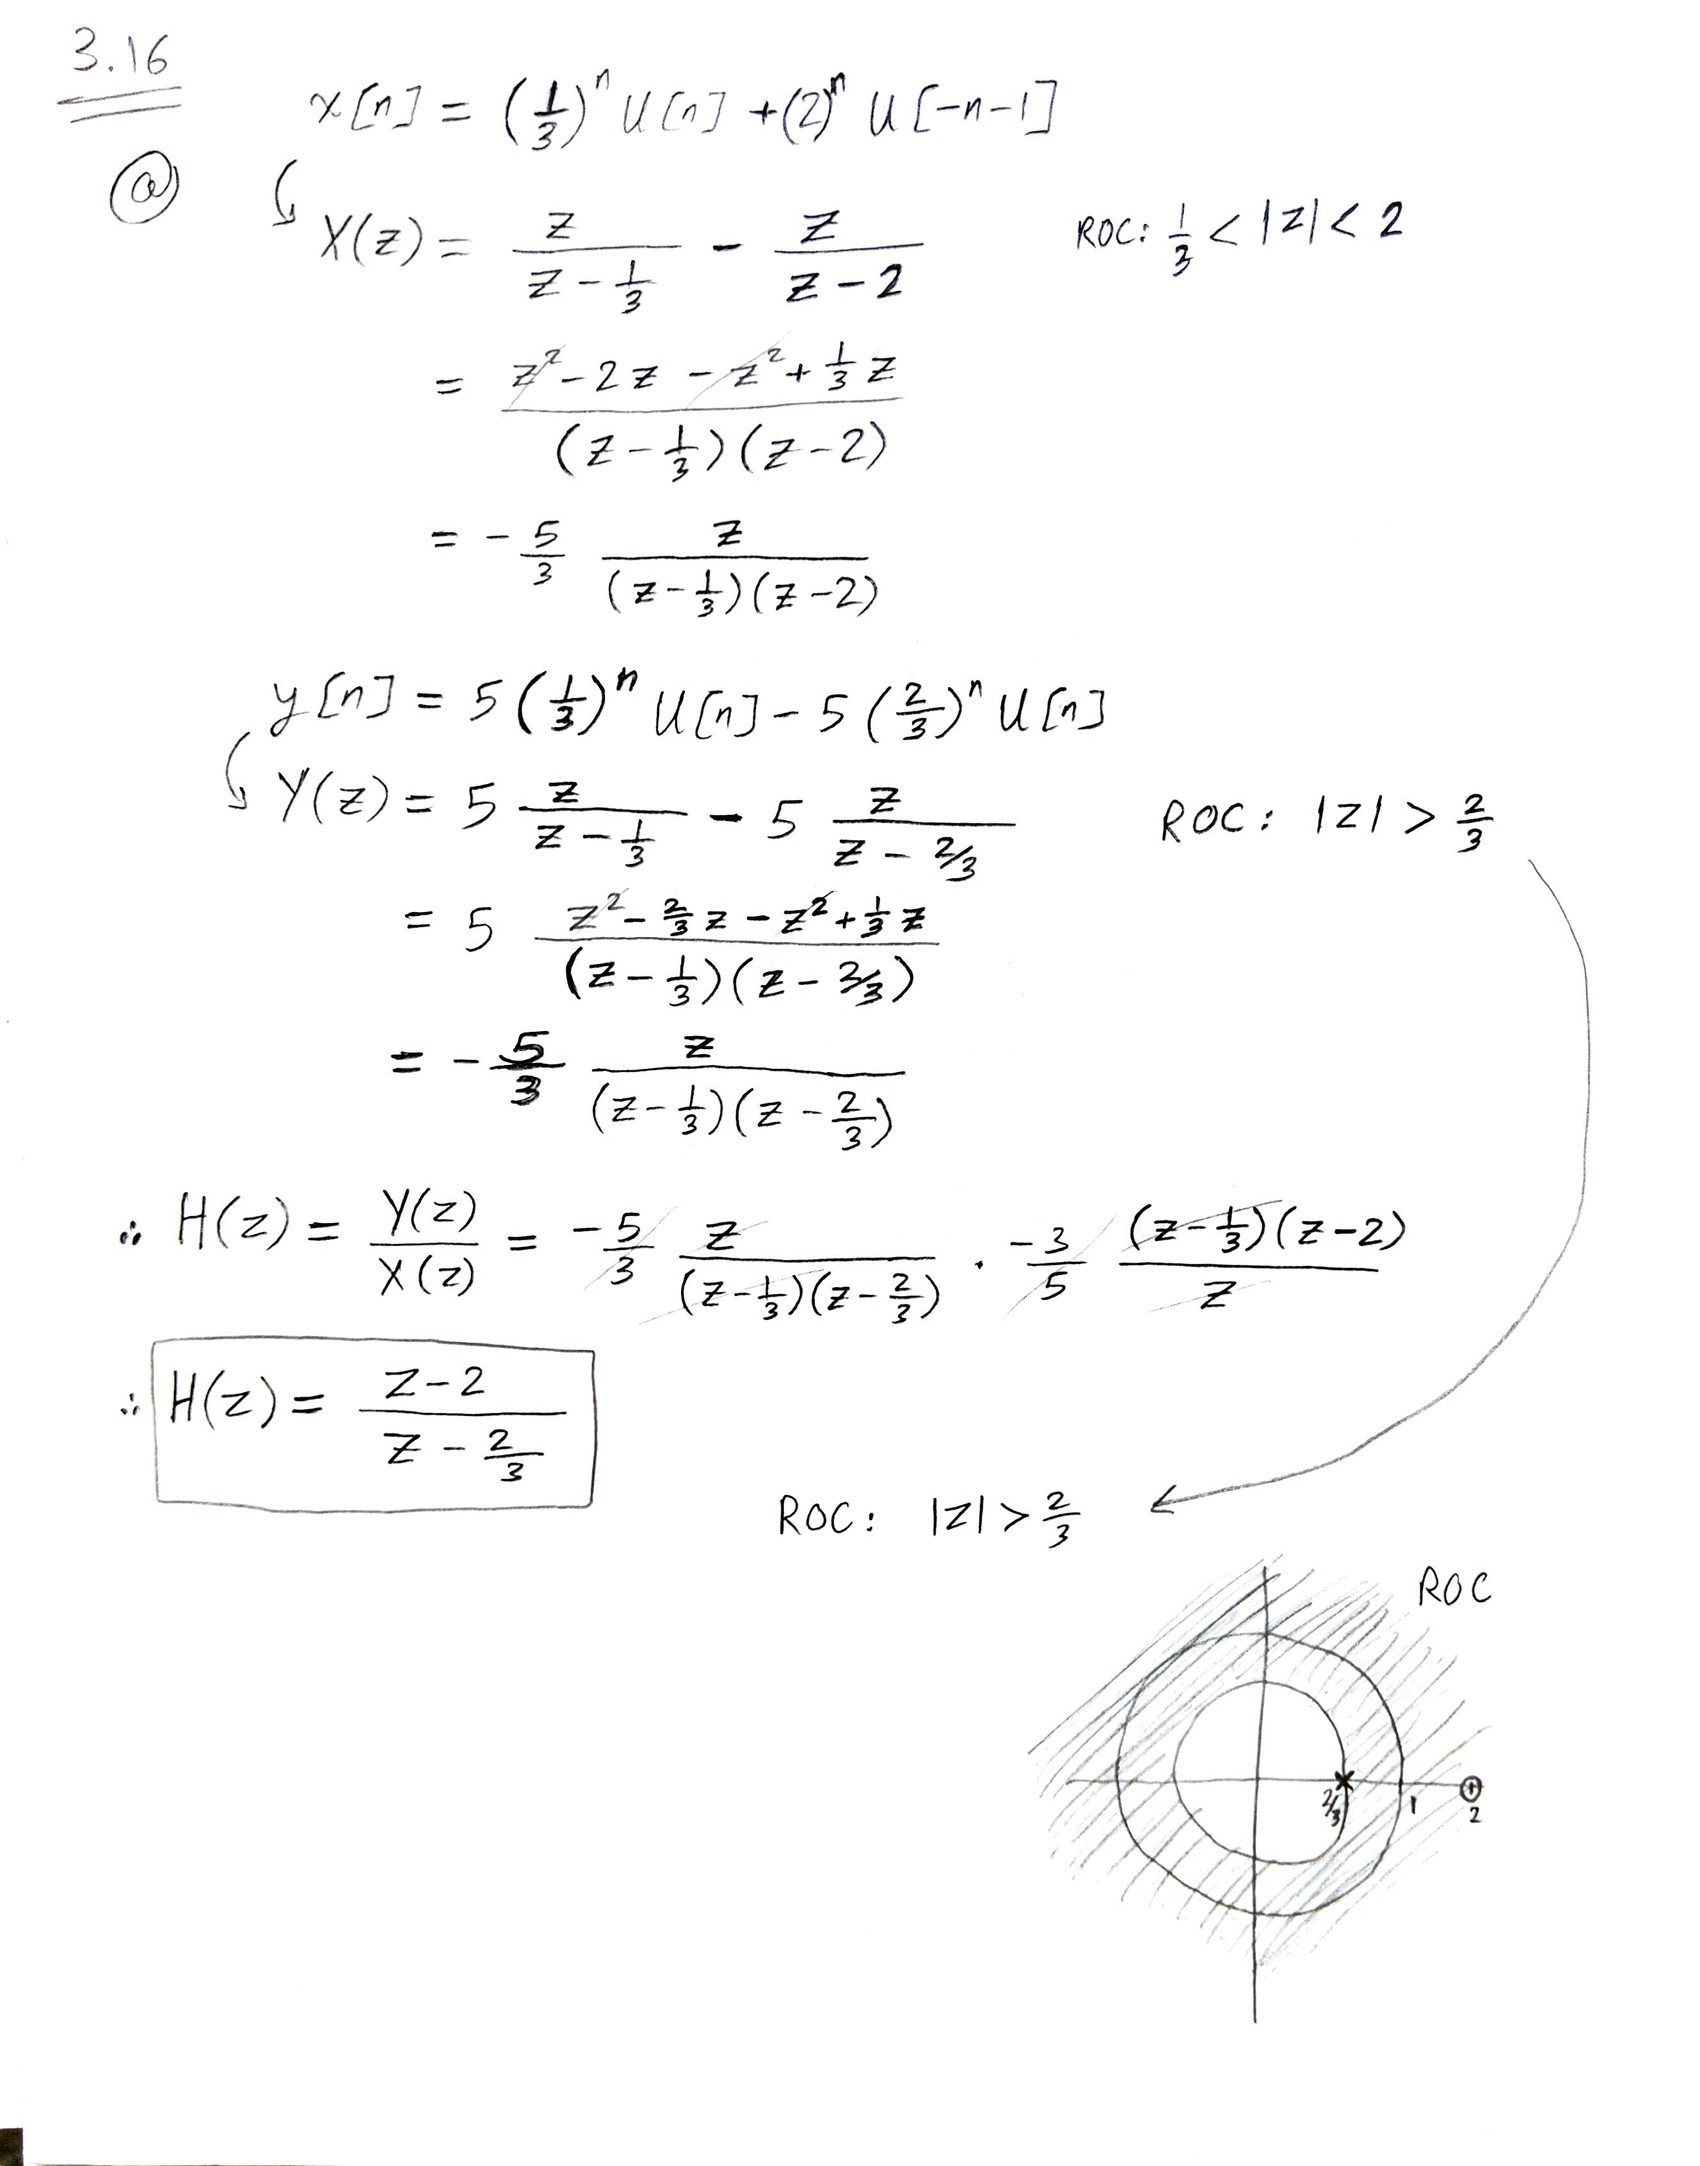 3.16
x[n] = (1/3)^n u[n] + (2)^n u[-n-1]
(a)
X(z) = z/(z - 1/3) - z/(z - 2)   ROC: 1/3 < |z| < 2
= (z^2 - 2z - z^2 + 1/3 z)/((z - 1/3)(z - 2))
= - 5/3 z/((z - 1/3)(z - 2))
y[n] = 5 (1/3)^n u[n] - 5 (2/3)^n u[n]
Y(z) = 5 z/(z - 1/3) - 5 z/(z - 2/3)   ROC: |z| > 2/3
= 5 (z^2 - 2/3 z - z^2 + 1/3 z)/((z - 1/3)(z - 2/3))
= - 5/3 z/((z - 1/3)(z - 2/3))
∴ H(z) = Y(z)/X(z) = -5/3 z/((z - 1/3)(z - 2/3)) · -3/5 ((z - 1/3)(z - 2))/z
∴ H(z) = (z - 2)/(z - 2/3)
ROC: |z| > 2/3
ROC
2/3 1 2